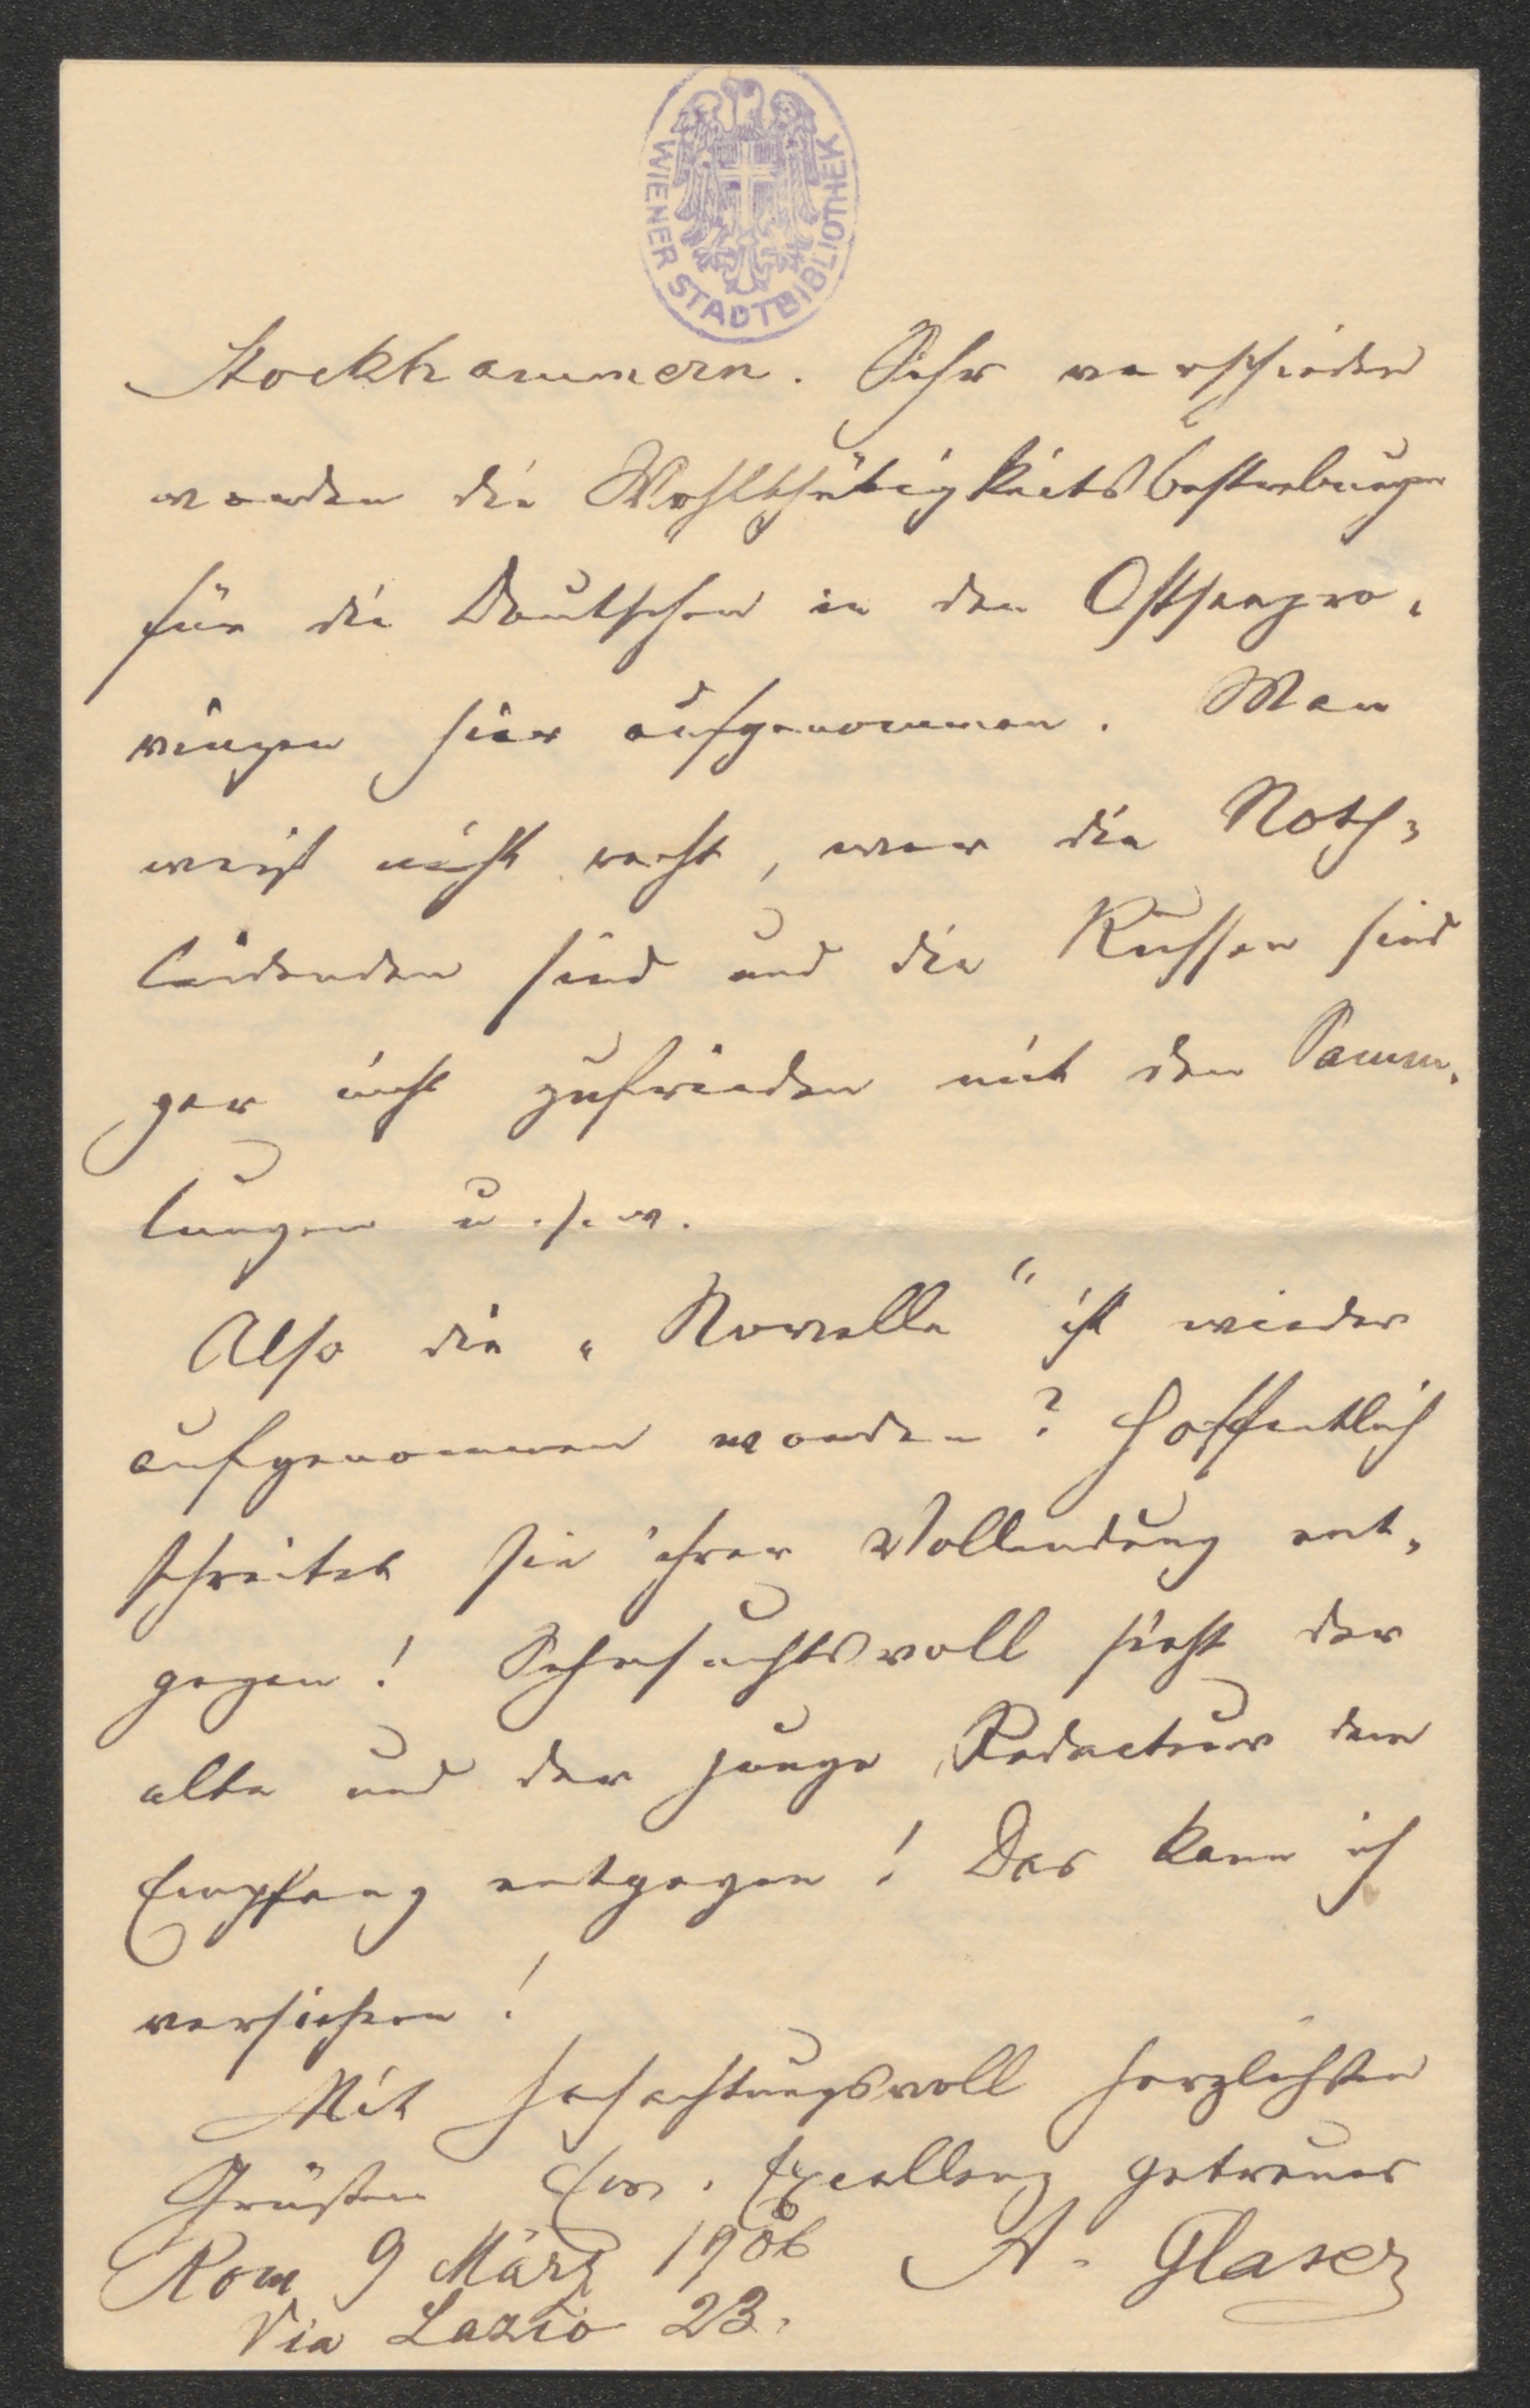 WIENER STADTBIBLIOTHEK
Stockhammern. Sehr verschieden
werden die Wohlthätigkeitsbestrebungen
für die Deutschen in den Ostseepro-
vinzen hier aufgenommen. Man
weiß nicht recht, wer die Noth-
leidenden sind und die Russen sind
gar nicht zufrieden mit den Samm-
lungen u.s.w.
Also die „Novelle“ ist wieder
aufgenommen worden? Hoffentlich
schreitet sie ihrer Vollendung ent-
gegen! Sehnsuchtsvoll sieht der
alte und der junge Redacteur dem
Empfang entgegen! Das kann ich
versichern!
Mit hochachtungsvoll herzlichsten
Grüßen Ew. Excellenz getreuer
Rom 9 März 1906 A. Glaser
Via Lazio 23.